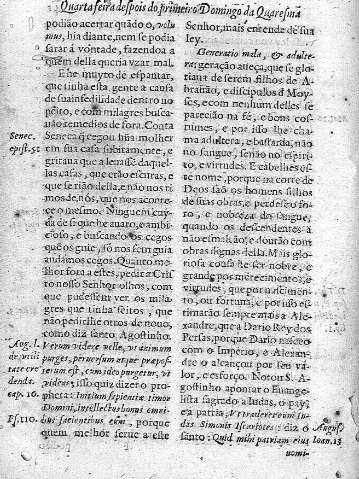 Quarta feira despois do primeiro Domingo da Quaresma
podião acertar quãdo o, volu
mus, hia diante, nem se podia
sarar á vontade, fazendo a a
quem della queria vzar mal.
E he muyto de espantar,
que tinha esta gente a causa
de sua infedilidade dentro no
peito, e com milagres busca
não remedios de fora. Conta
Seneca q̃ cegou hũa molher
em sua casa subitamente, e
gritaua que a lensse daquel-
las casas, que erão escuras, e
que se rião della, e nao nos ri
mos de nòs, que nos aconre-
ce o mesmo: Ninguem cuy-
da de si que he auaro, e ambi-
cioso, e buscando os cegos
quẽ os guie, sò nos sem guia
andamos cegos. Quanto me-
lhor fora a estes, pedir a Cris
to nosso Senhor olhos, com
que pudessem ver os mila-
gres que tinha feitos, que
não pedirlhe outros de nouo,
como diz santo Agostinho.
Verum videre velle, vt animum
purges, peruersum atque præpos-
terum est, cum ideo purgetur, vt
videas; isso quiz dizer o pro-
pheta: Initium sapientiæ timor
Domini, intellectus bonus omni-
bus facientibus eum, porque
quem melhor serue a este
Senec.
epist. 51
Aug. l.
de vtili
tate cre
denda.
cap. 16.
Ps. 110.
Senhor, mais entende de sua
ley.
Generatio mala, & adulte-
ra; geração aueça, que se glo
riaua de serem filhos de A-
brahão, e discipulos de Moy-
ses, e com nenhum delles se
parecião na fé, e bons cos-
tumes, e por isso lhe cha-
ma adultera, e bastarda, não
no sangue, senão no espiri-
to, e virtudes. E cabelhes es-
te nome, porque na corte de
Deos são os homens filhos
de suas obras, e perdese o fo-
ro, e nobreza do sangue,
quando os descendentes a
não esmaltão, e dourão com
obras dignas della. Mais glo-
riosa cousa he ser nobre, e
grande por merecimentos, e
virtudes, que por nascimen-
to, ou fortuna, e por isso es-
timarão sempre mais a Ale-
xandre, que a Dario Rey dos
Persas, porque Dario nasceo
com o Imperio, e Alexan-
dre o alcançou por seu va-
lor, e esforço. Notou S. A-
gostinho apontar o Euange-
lista sagrado a Iudas, o pay,
e a patria; Vt traderet eum Iu-
das Simonis Iscariotes: diz o
santo: Quid mihi patriam eius
nomi-
August.
Ioan. 13